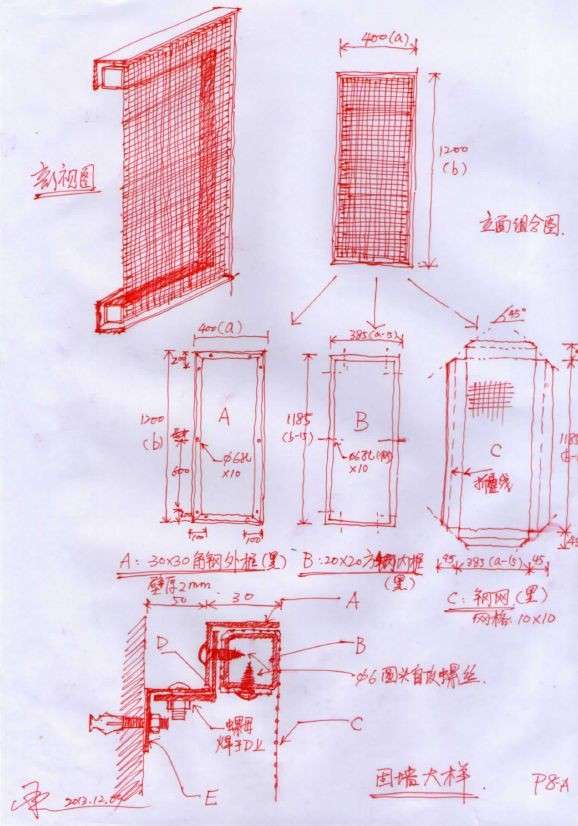 400(a)
1200
(b)
剖视图
立面组合图.
45°
400(a)
385(a-15)
200
1200
(b)
A
600
φ6孔
×10
100
100
1185
(b-15)
B
×10
C
折叠线
45
385(a-15)
45
A: 30×30角钢外框(黑)
壁厚2mm
B: 20×20方钢内框
(黑)
C: 钢网(黑)
网格10×10
50
30
A
B
D
φ6圆头自攻螺丝.
C
螺母
焊于D上
E
围墙大样.
P8-A
2013.12.09